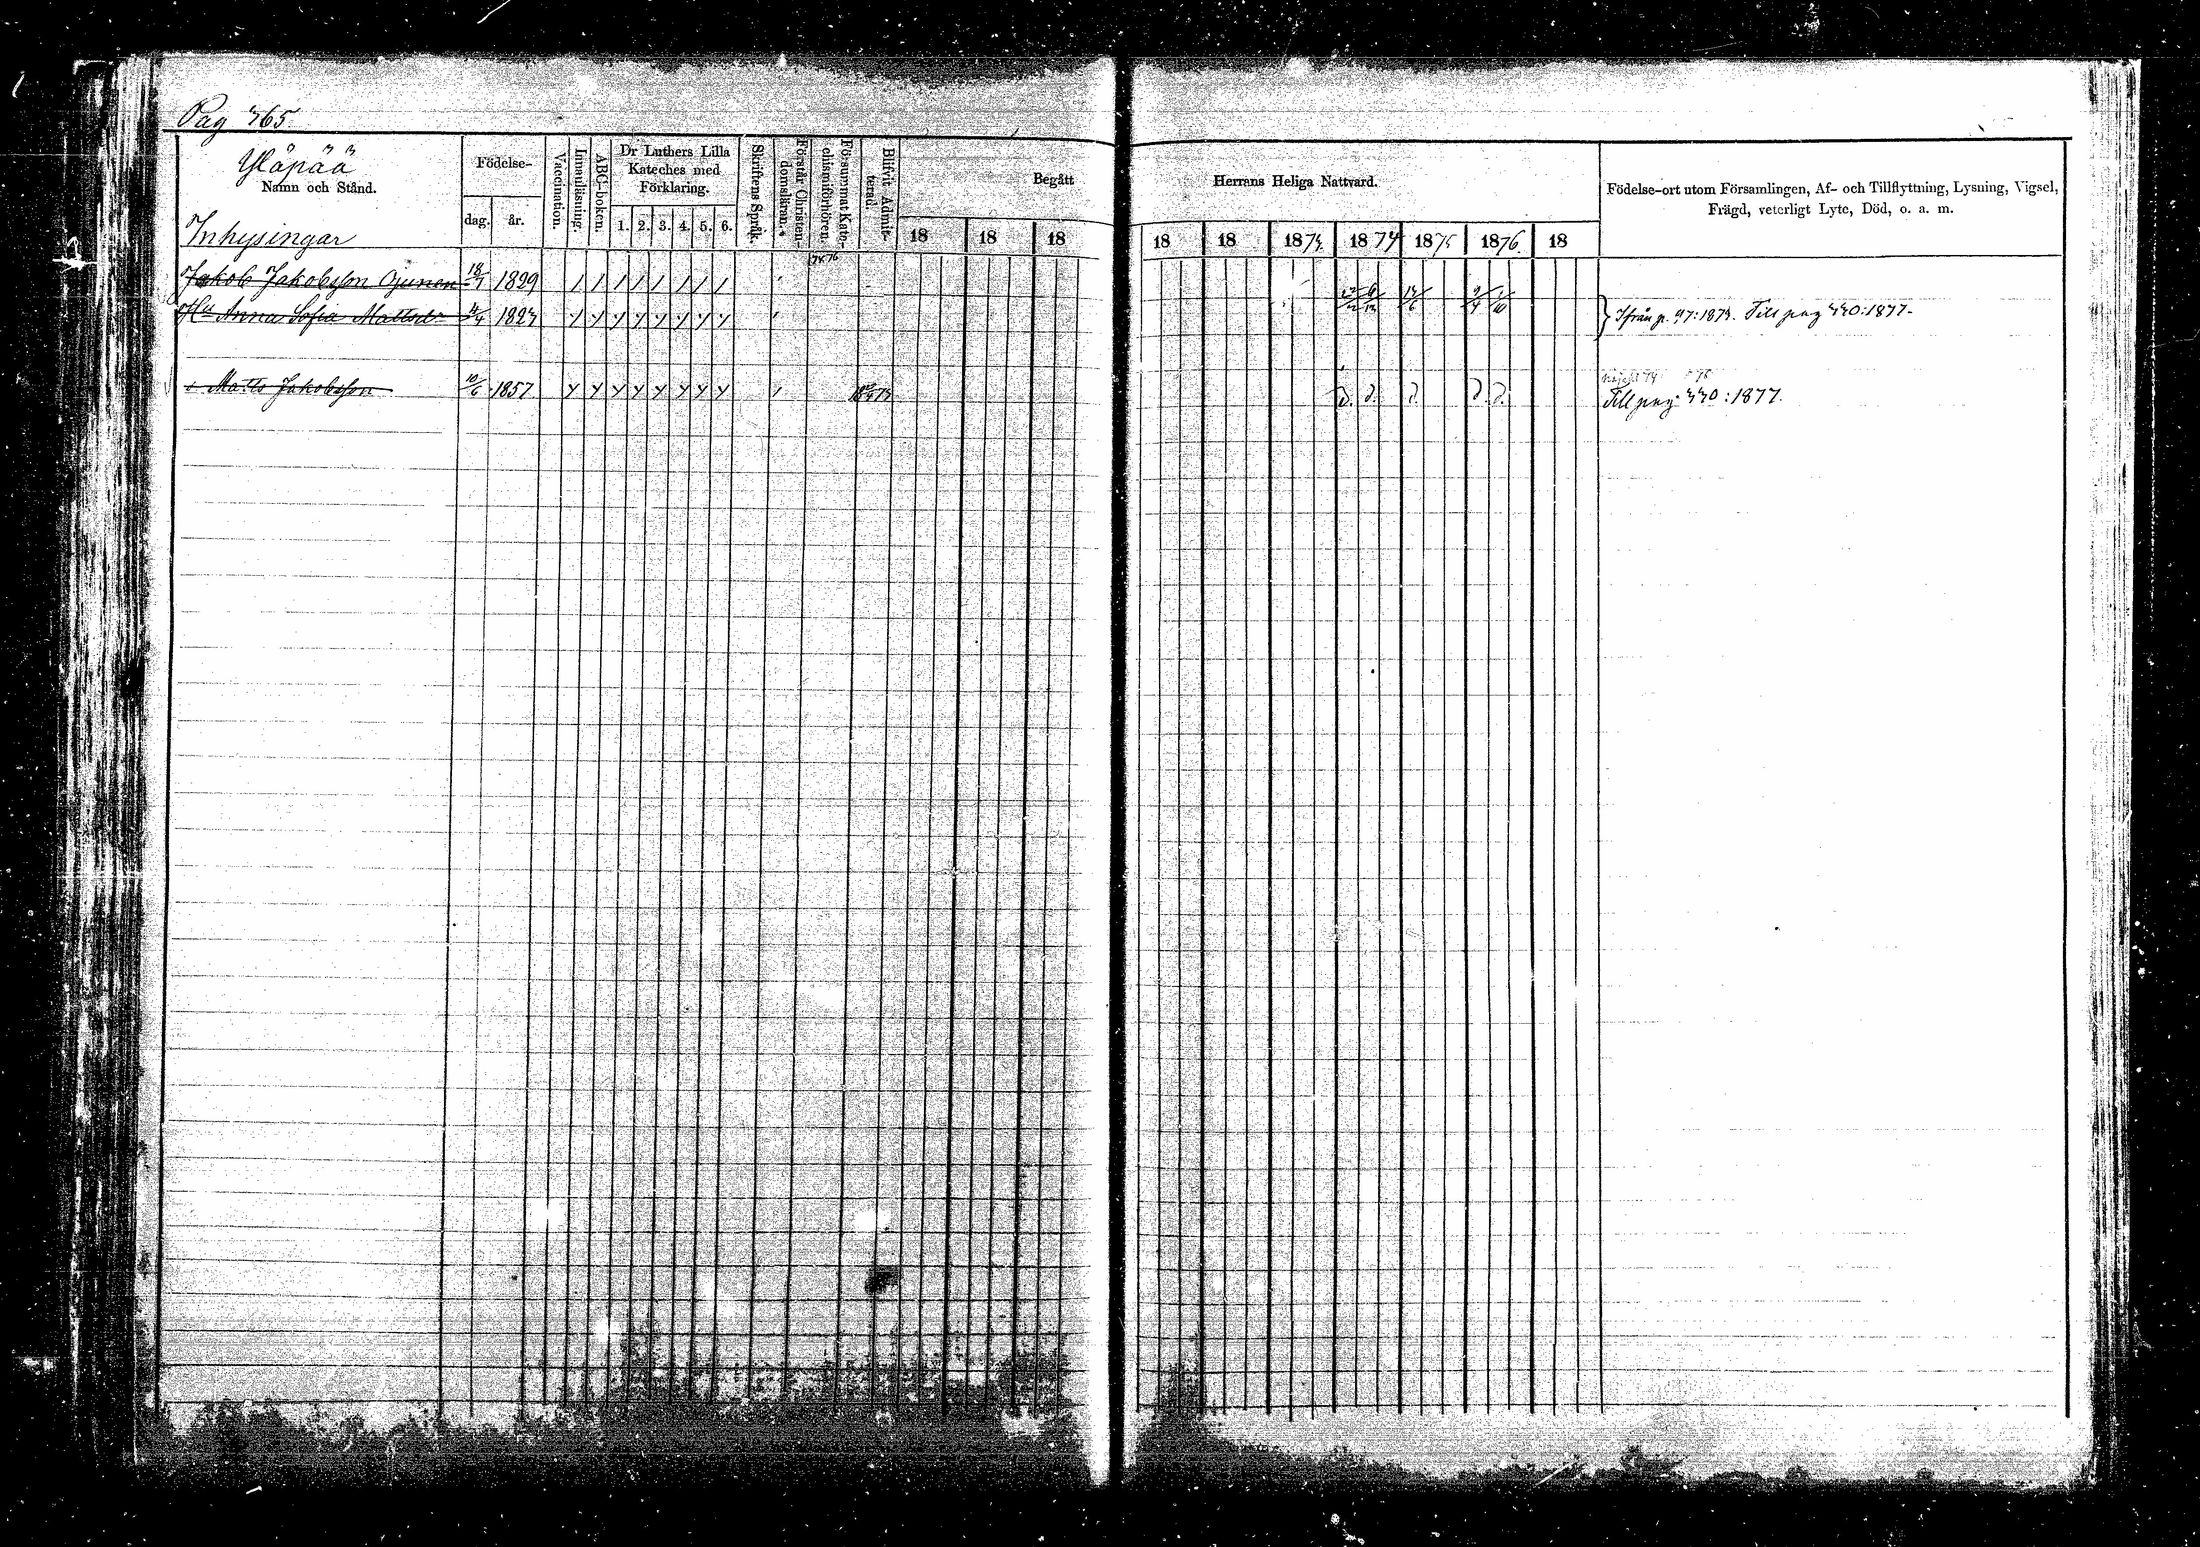 Pag 365.
Yläpää
Namn och Stånd.
Födelse-
dag.
år.
Vaccination.
Innanläsning.
ABC-boken.
Dr Luthers Lilla
Kateches med
Förklaring.
1. 2. 3. 4. 5. 6.
Skriftens Språk.
Förstår Christen-
domsläran.
Försummat Kate-
chismiförhören.
Blifvit Admit-
terad.
Begått
Herrans Heliga Nattvard.
18 18 18 18 18 1873. 1874 1875 1876. 18
Födelse-ort utom Församlingen, Af- och Tillflyttning, Lysning, Vigsel,
Frägd, veterligt Lyte, Död, o. a. m.
Inhysingar
Jakob Jakobsson Ojunen 18/7 1829
Hu Anna Sofia Mattsdr 4/4 1823
Ifrån p. 47:1873. Till pag 330:1877.
s Matts Jakobsson 10/6 1857
Till pag. 330:1877.